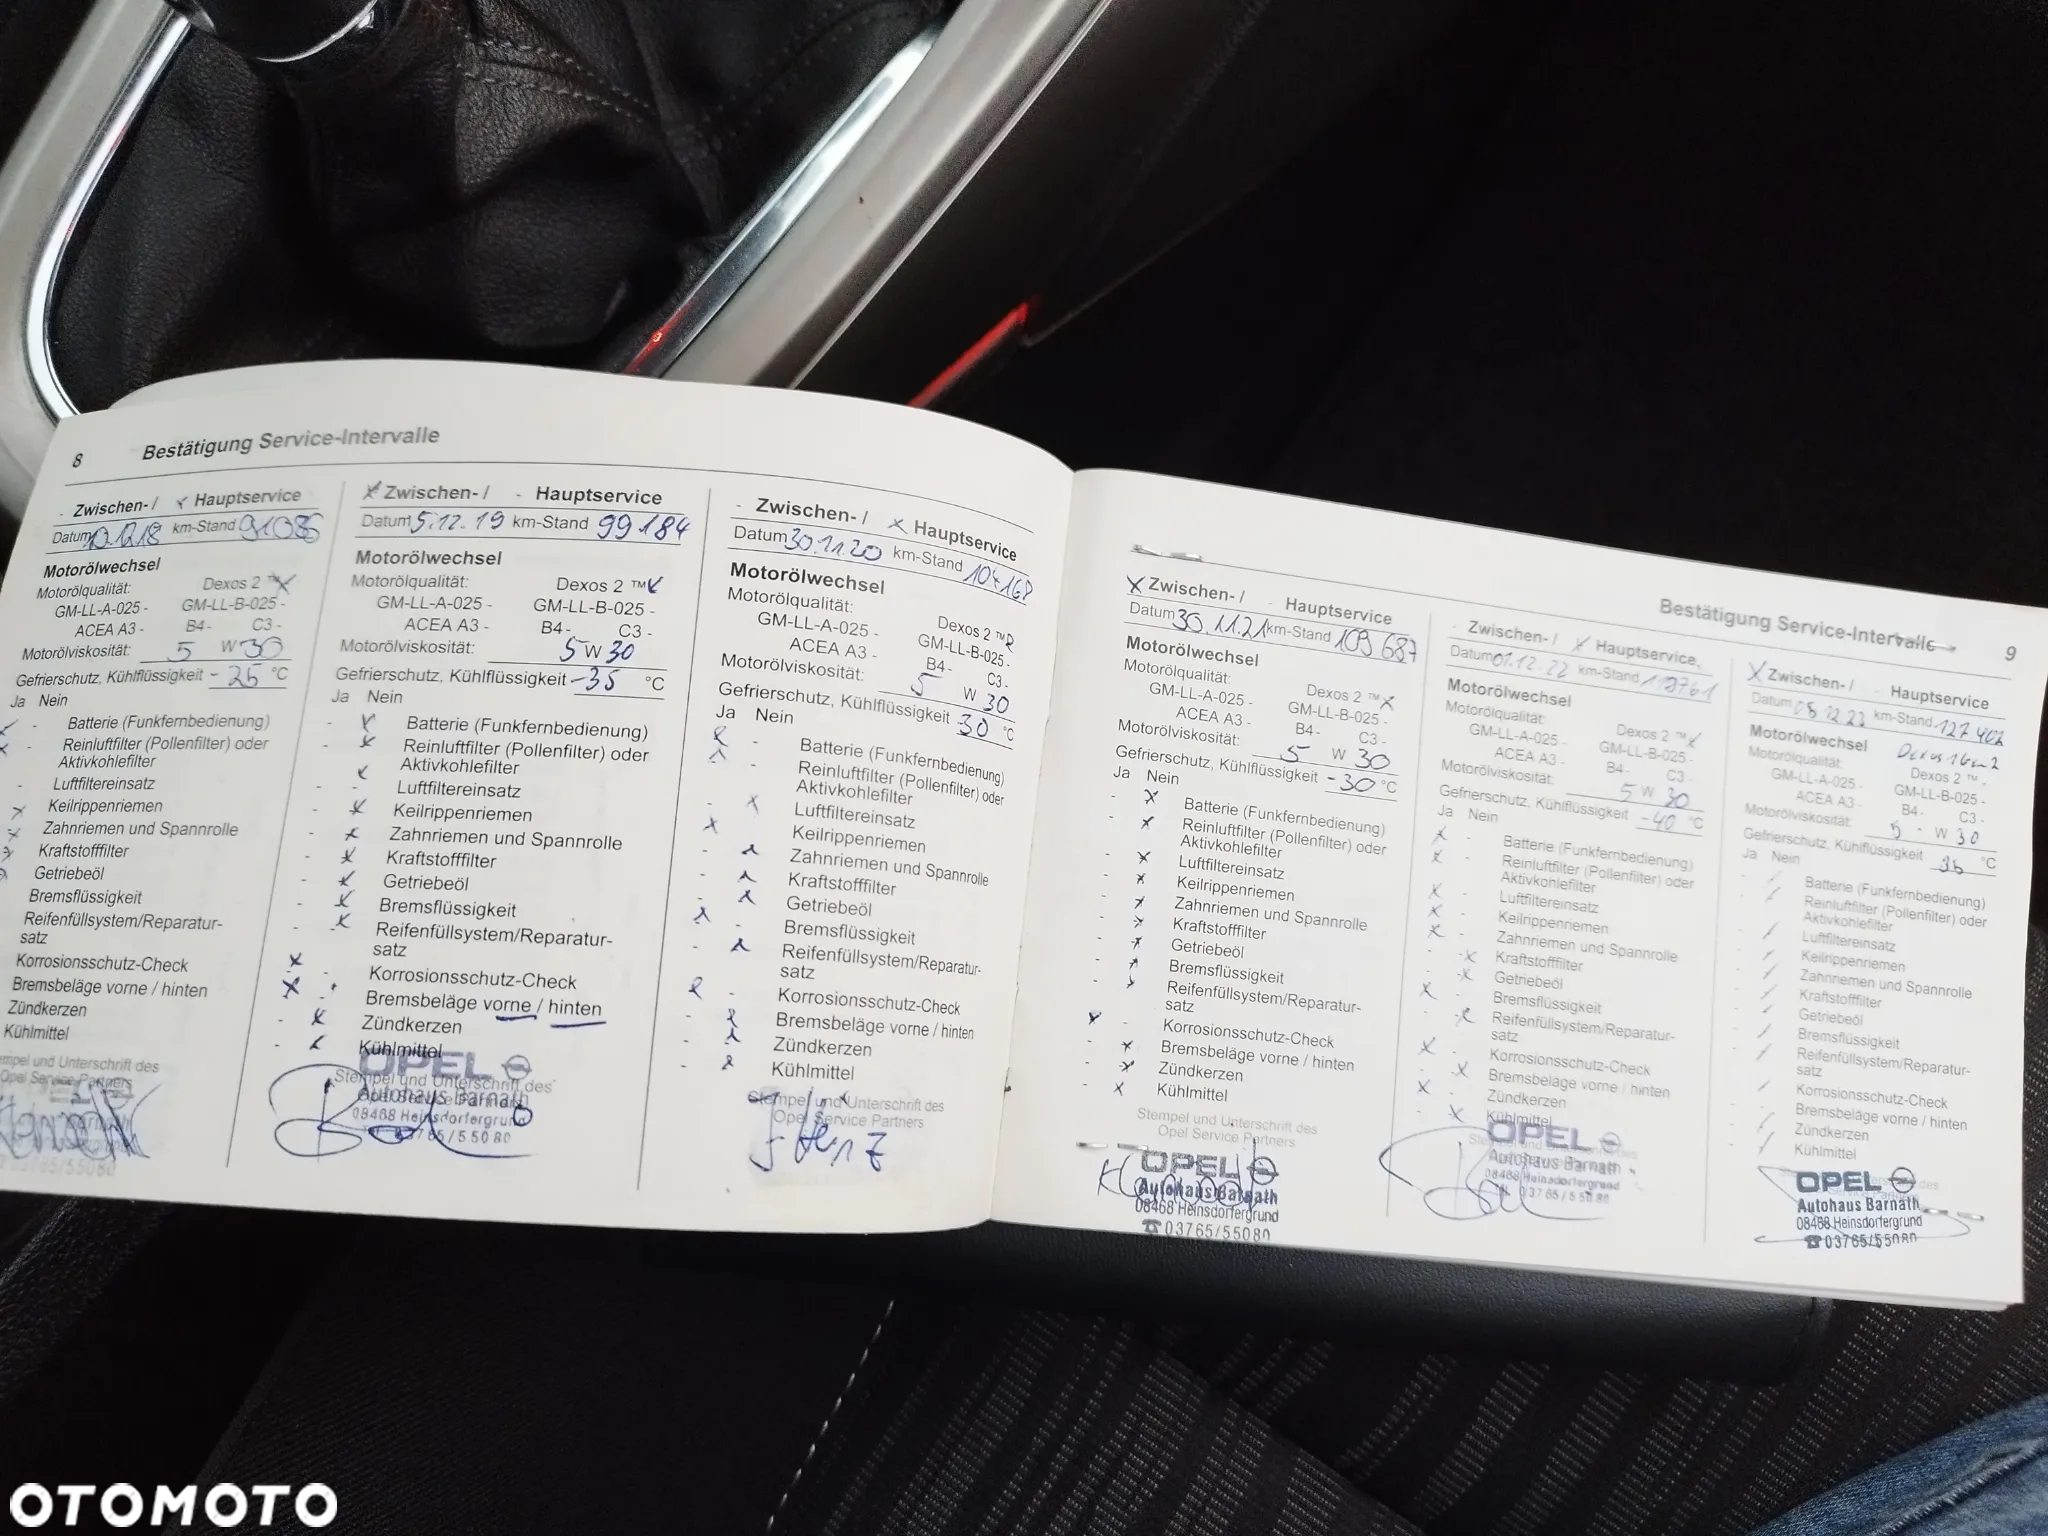 8 Bestätigung Service-Intervalle
- Zwischen- / x Hauptservice
Datum 12.18 km-Stand 91086
Motorölwechsel
Motorölqualität: Dexos 2 ™ x
GM-LL-A-025 - GM-LL-B-025 -
ACEA A3 - B4 - C3 -
Motorölviskosität: 5 W 30
Gefrierschutz, Kühlflüssigkeit - 25 °C
Ja Nein
Batterie (Funkfernbedienung)
Reinluftfilter (Pollenfilter) oder
Aktivkohlefilter
Luftfiltereinsatz
Keilrippenriemen
Zahnriemen und Spannrolle
Kraftstofffilter
Getriebeöl
Bremsflüssigkeit
Reifenfüllsystem/Reparatur-
satz
Korrosionsschutz-Check
Bremsbeläge vorne / hinten
Zündkerzen
Kühlmittel
Stempel und Unterschrift des
Opel Service Partners
03765/55080
x Zwischen- / - Hauptservice
Datum 5.12.19 km-Stand 99184
Motorölwechsel
Motorölqualität: Dexos 2 ™ x
GM-LL-A-025 - GM-LL-B-025 -
ACEA A3 - B4 - C3 -
Motorölviskosität: 5 W 30
Gefrierschutz, Kühlflüssigkeit -35 °C
Ja Nein
- x Batterie (Funkfernbedienung)
- x Reinluftfilter (Pollenfilter) oder
Aktivkohlefilter
- x Luftfiltereinsatz
- x Keilrippenriemen
- x Zahnriemen und Spannrolle
- x Kraftstofffilter
- x Getriebeöl
- x Bremsflüssigkeit
- x Reifenfüllsystem/Reparatur-
satz
x - Korrosionsschutz-Check
x - Bremsbeläge vorne / hinten
- x Zündkerzen
- x Kühlmittel
Stempel und Unterschrift des
Opel Service Partners
OPEL
Autohaus Barnath
08468 Heinsdorfergrund
03765/55080
- Zwischen- / x Hauptservice
Datum 30.11.20 km-Stand 104168
Motorölwechsel
Motorölqualität: Dexos 2 ™ x
GM-LL-A-025 - GM-LL-B-025 -
ACEA A3 - B4 - C3 -
Motorölviskosität: 5 W 30
Gefrierschutz, Kühlflüssigkeit -30 °C
Ja Nein
x - Batterie (Funkfernbedienung)
x - Reinluftfilter (Pollenfilter) oder
Aktivkohlefilter
- x Luftfiltereinsatz
x - Keilrippenriemen
- x Zahnriemen und Spannrolle
- x Kraftstofffilter
- x Getriebeöl
x - Bremsflüssigkeit
- x Reifenfüllsystem/Reparatur-
satz
x - Korrosionsschutz-Check
- x Bremsbeläge vorne / hinten
- x Zündkerzen
- x Kühlmittel
Stempel und Unterschrift des
Opel Service Partners
Bestätigung Service-Intervalle 9
x Zwischen- / - Hauptservice
Datum 30.11.21 km-Stand 109687
Motorölwechsel
Motorölqualität: Dexos 2 ™ x
GM-LL-A-025 - GM-LL-B-025 -
ACEA A3 - B4 - C3 -
Motorölviskosität: 5 W 30
Gefrierschutz, Kühlflüssigkeit -30 °C
Ja Nein
- x Batterie (Funkfernbedienung)
- x Reinluftfilter (Pollenfilter) oder
Aktivkohlefilter
- x Luftfiltereinsatz
- x Keilrippenriemen
- x Zahnriemen und Spannrolle
- x Kraftstofffilter
- x Getriebeöl
- x Bremsflüssigkeit
- x Reifenfüllsystem/Reparatur-
satz
x - Korrosionsschutz-Check
- x Bremsbeläge vorne / hinten
- x Zündkerzen
- x Kühlmittel
Stempel und Unterschrift des
Opel Service Partners
OPEL
Autohaus Barnath
08468 Heinsdorfergrund
☎ 03765/55080
- Zwischen- / x Hauptservice
Datum 01.12.22 km-Stand 118761
Motorölwechsel
Motorölqualität: Dexos 2 ™ x
GM-LL-A-025 - GM-LL-B-025 -
ACEA A3 - B4 - C3 -
Motorölviskosität: 5 W 30
Gefrierschutz, Kühlflüssigkeit -40 °C
Ja Nein
x - Batterie (Funkfernbedienung)
x - Reinluftfilter (Pollenfilter) oder
Aktivkohlefilter
x - Luftfiltereinsatz
x - Keilrippenriemen
x - Zahnriemen und Spannrolle
- x Kraftstofffilter
- x Getriebeöl
x - Bremsflüssigkeit
- x Reifenfüllsystem/Reparatur-
satz
x - Korrosionsschutz-Check
- x Bremsbeläge vorne / hinten
x - Zündkerzen
- x Kühlmittel
OPEL
Autohaus Barnath
08468 Heinsdorfergrund
03765/55080
x Zwischen- / - Hauptservice
Datum 05.12.23 km-Stand 127402
Motorölwechsel
Motorölqualität: Dexos 2 ™ -
GM-LL-A-025 - GM-LL-B-025 -
ACEA A3 - B4 - C3 -
Motorölviskosität: 5 W 30
Gefrierschutz, Kühlflüssigkeit °C
Ja Nein
Batterie (Funkfernbedienung)
Reinluftfilter (Pollenfilter) oder
Aktivkohlefilter
Luftfiltereinsatz
Keilrippenriemen
Zahnriemen und Spannrolle
Kraftstofffilter
Getriebeöl
Bremsflüssigkeit
Reifenfüllsystem/Reparatur-
satz
Korrosionsschutz-Check
Bremsbeläge vorne / hinten
Zündkerzen
Kühlmittel
OPEL
Autohaus Barnath
08468 Heinsdorfergrund
☎ 03765/55080
OTOMOTO